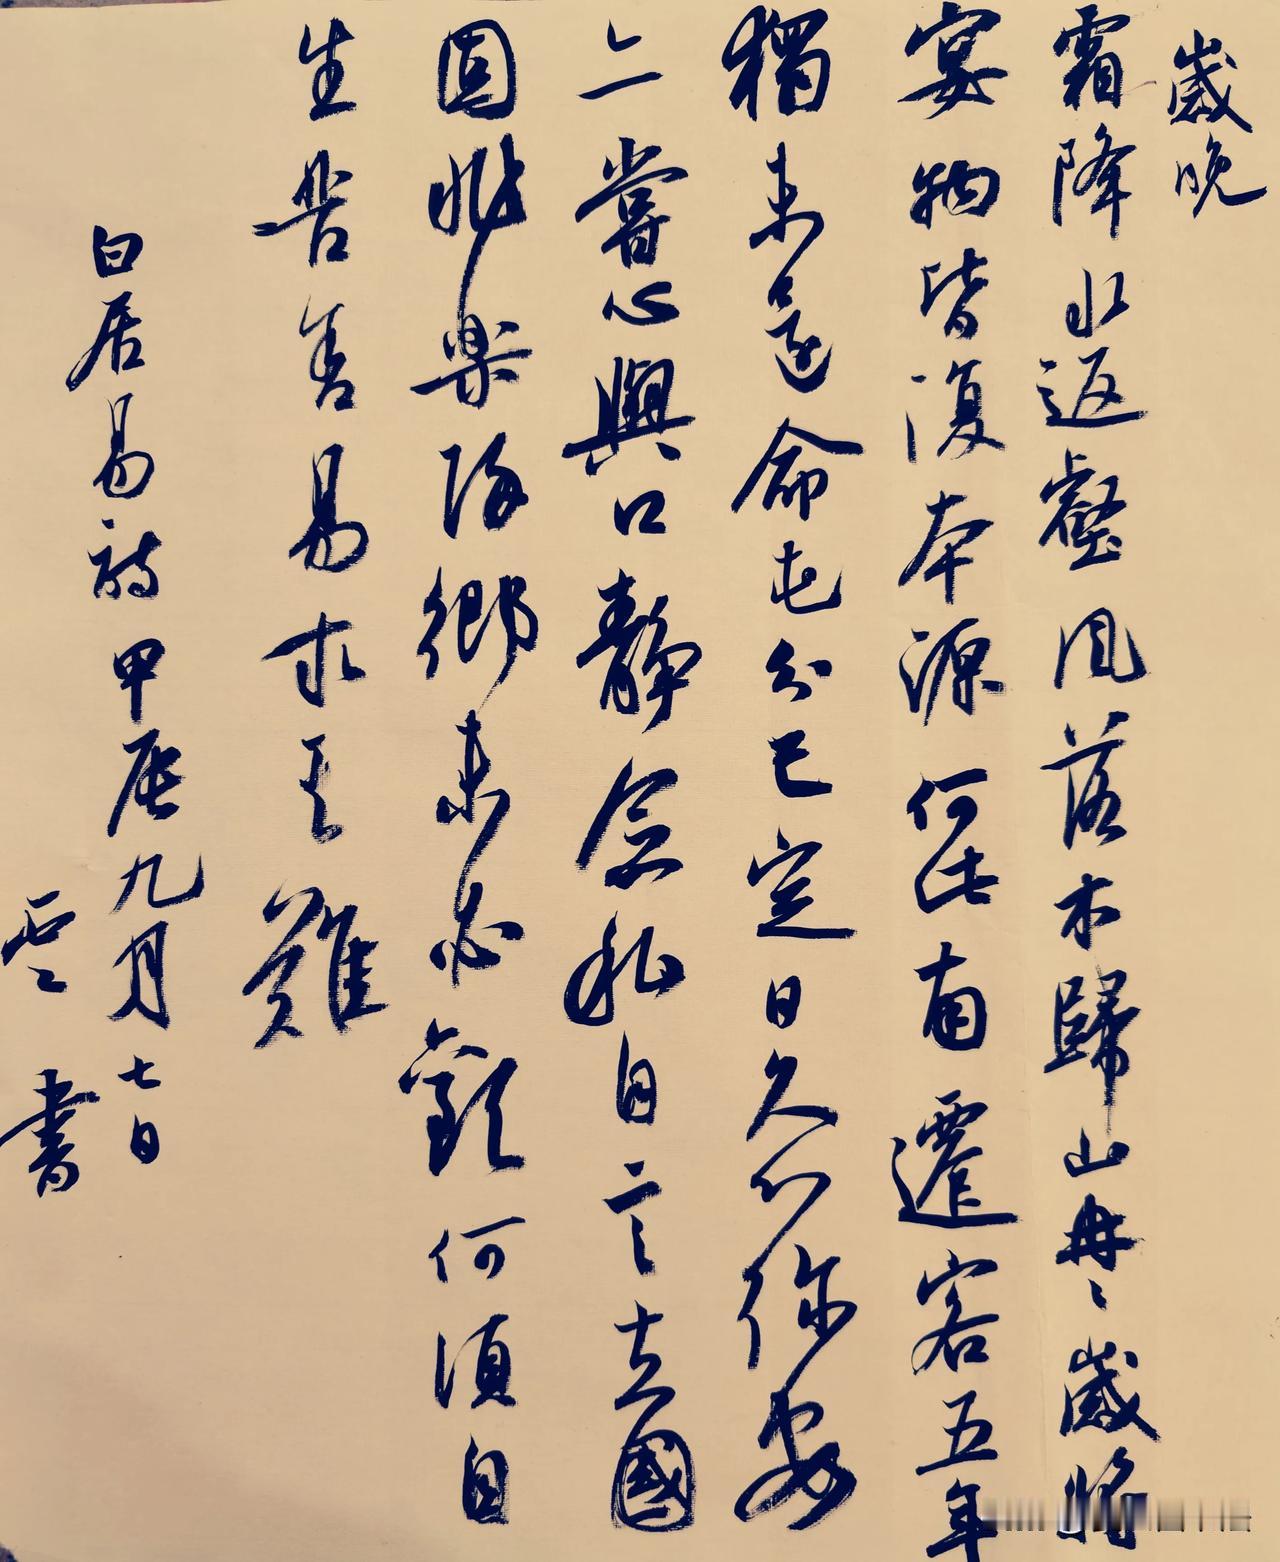 歲晚
霜降水返壑風落木歸山冉々歲將
宴物皆復本源何此南遷客五年
獨未還命屯分已定日久心弥安
亦嘗心與口靜念私自言去國
固非樂歸鄉未必歡何須自
生苦舍易求其難
白居易詩甲辰九月七日
雲書